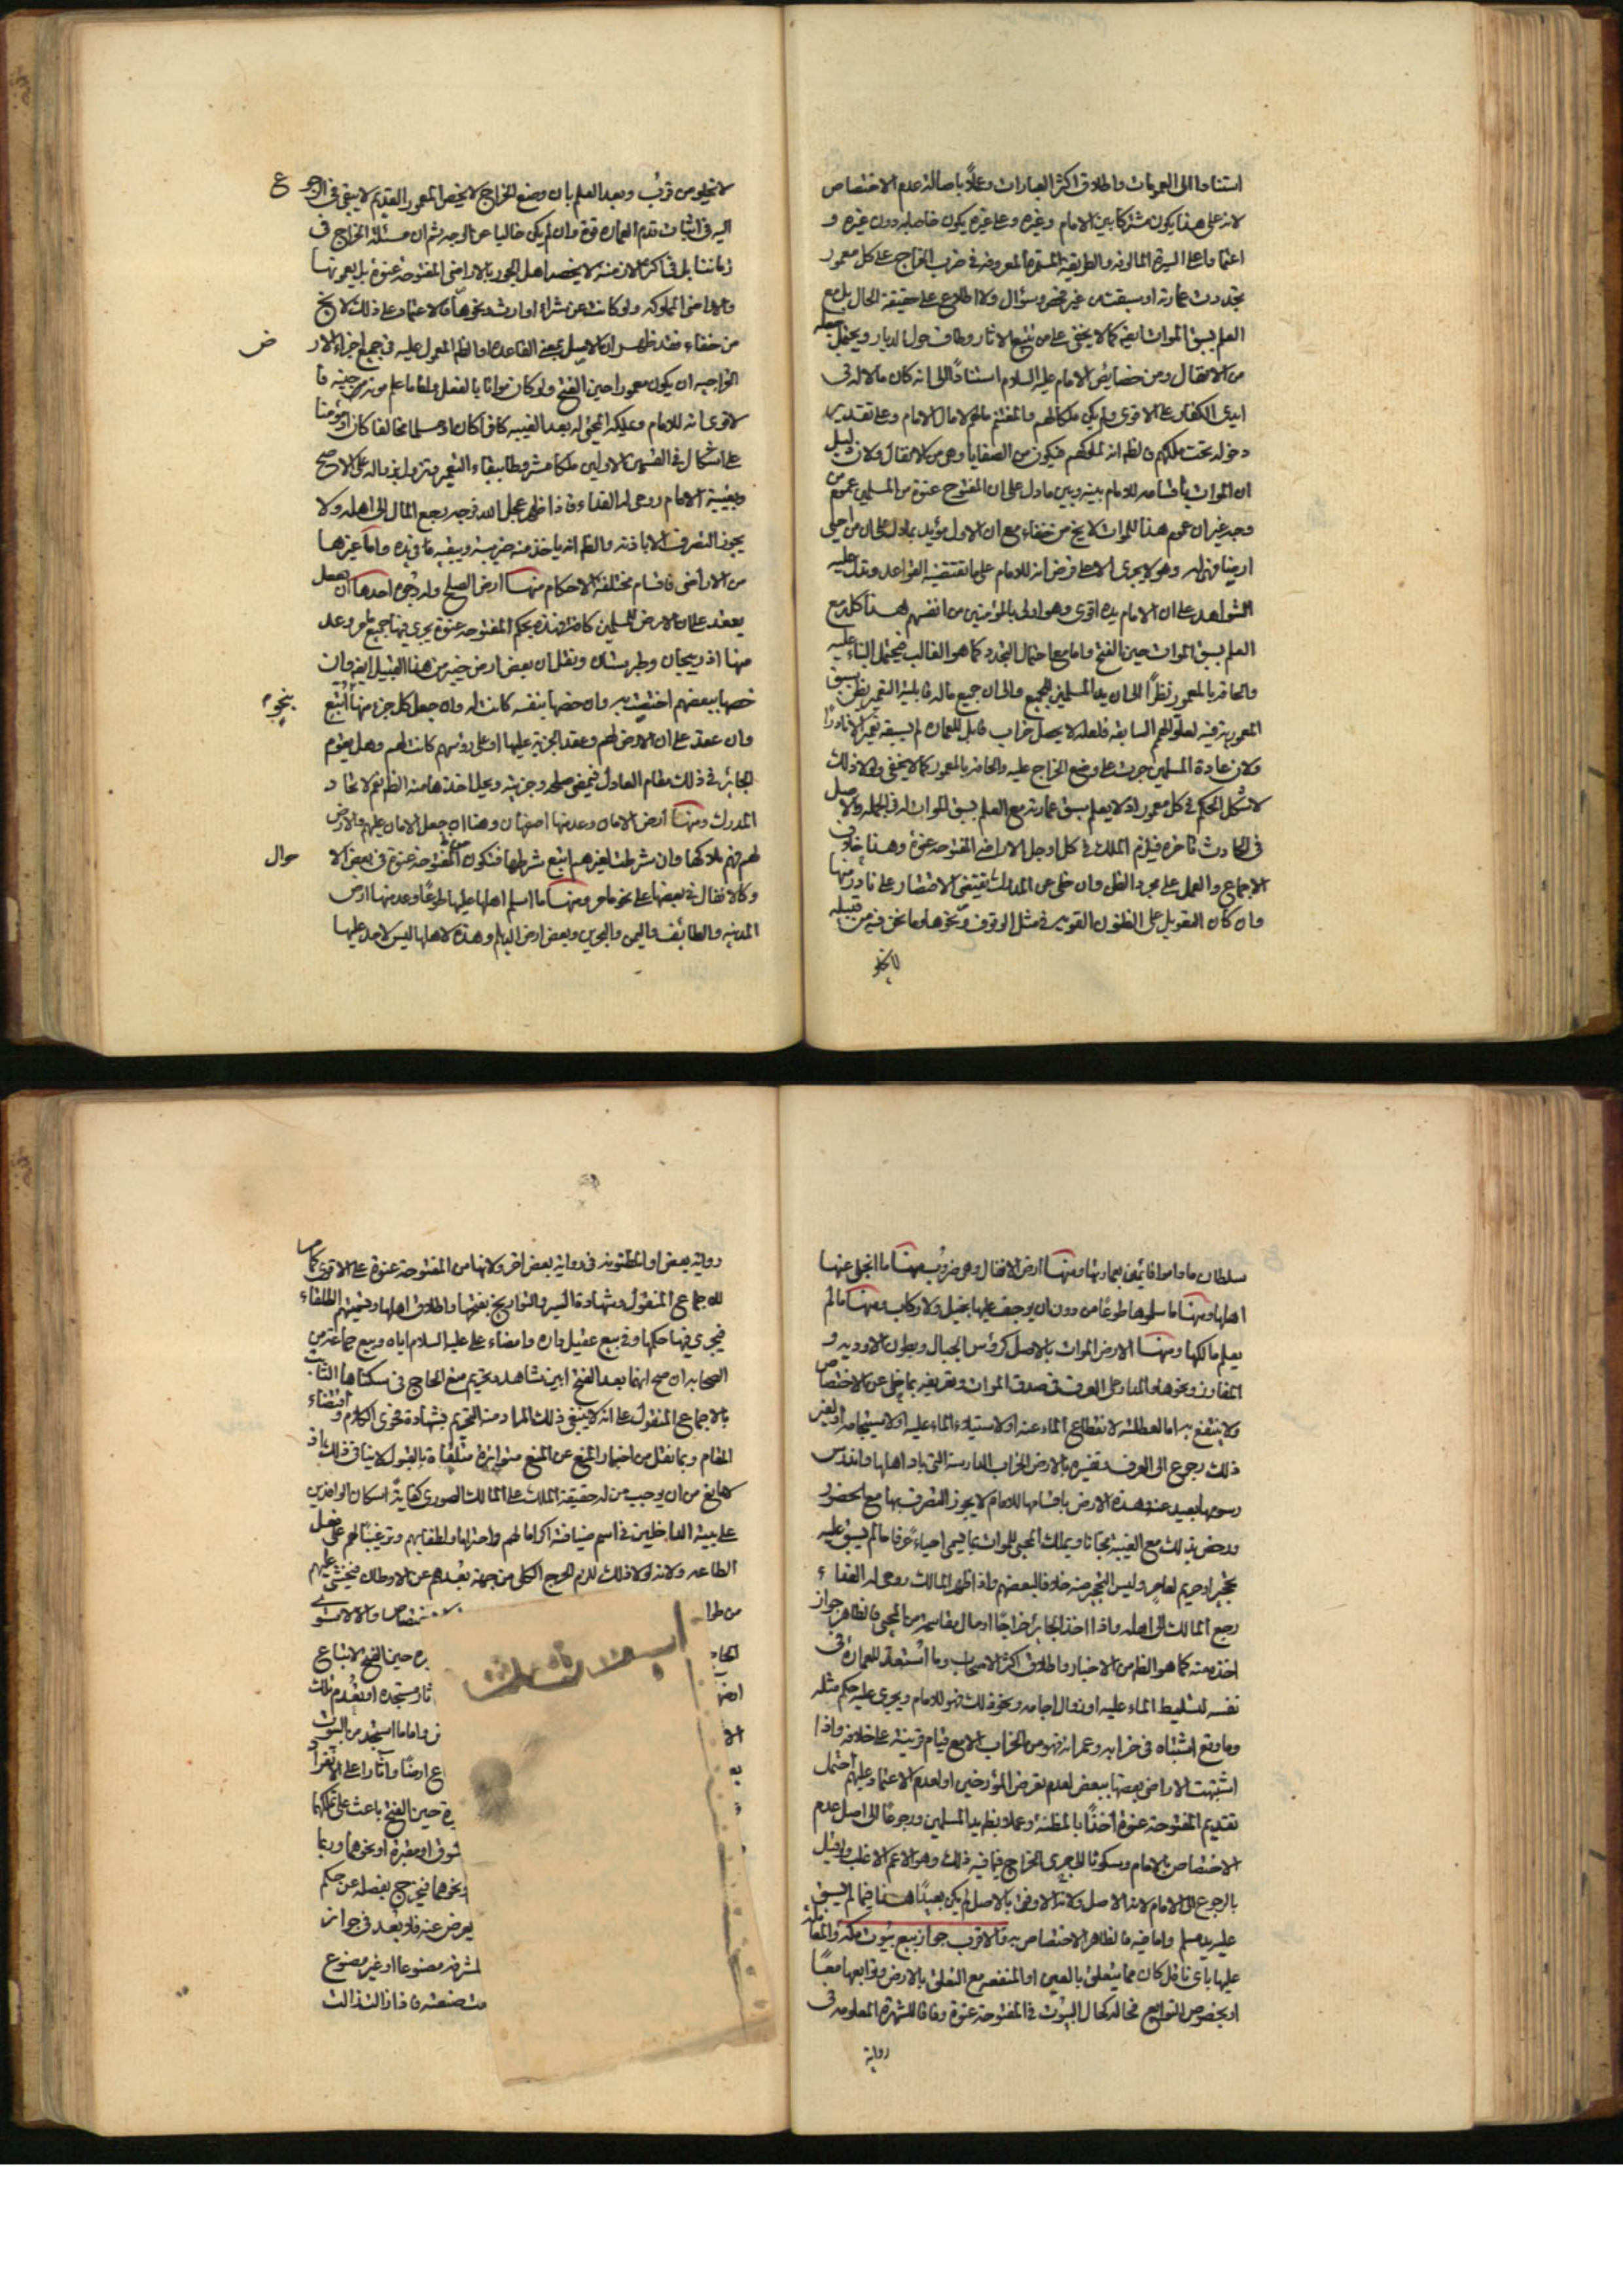 استنادا الى العمومات واطلاق اكثر العبارات وعملًا باصالة عدم الاختصاص
لانه على هذا يكون مشتركا بين الامام وغيره وعلى غيره يكون خاصا به دون غيره و
اعتمادا على السيرة المالوفه والطريقة المستمرة المعروفه فى ضرب الخراج على كل معمور
تجددت عمارته او سبقت من غير فحص وسؤال ولا اطلاع على حقيقة الحال بل مع
العلم بسبق الموات ايضا كما لا يخفى على من تتبع الاثار وطاف حول الديار ويحتمل جعله
من الانفال ومن خصايص الامام عليه السلام استنادًا الى انه كان مالا له فى
ايدى الكفار على الاقوى ولم يكن ملكا لهم والمغتنم مالهم لا مال الامام وعلى تقدير
دخوله تحت ملكهم فالظم انه لملوكهم فيكون من الصفايا وهى من الانفال ولان دليل
ان الموات باقسامه للامام بينه وبين مادل على ان المفتوح عنوة من المسلمين عموم من
وجه غير ان عموم هذا للموات لا يخ من خفاء مع ان الاول مؤيد بمادل على ان من احيى
ارضا فهى له وهو لا يجرى الا على فرض انه للامام على ما تقتضيه القواعد وتدل عليه
الشواهد على ان الامام يده اقوى وهو اولى بالمؤمنين من انفسهم هذا كله مع
العلم بسبق الموات حين الفتح واما مع احتمال التجدد كما هو الغالب فيحتمل البناء عليه
والحاقه بالمعمور نظرًا الى ان يد المسلمين للجميع والى ان جميع ماله قابلية التعمير يظن سبق
المعموريه فيه لعلو الهمم السابقه فلعله لا يحصل خراب قابل للعماره لم يسبقه تعمير الا نادرًا
ولان عادة المسلمين جرت على وضع الخراج عليه والحاقه بالمعمور كما لا يخفى ولولا ذلك
لاشكل الحكم فى كل معمور اذ لا يعلم سبق عمارته مع العلم بسبق الموات له فى الجمله والاصل
فى الحادث تاخره فيلزم الملك فى كل او جل الاراضى المفتوحه عنوة وهذا خلاف
الاجماع والعمل على مجرد الظن وان خلى عن المدرك يقتضى الاقتصار على نادر منها
وان كان التعويل على الظنون القويه فى مثل الوقوف ونحوها وما نحن فيه من قبيله
لا يخلو
لا يخلو من قرب وبعد العلم بان وضع الخراج لا يخص المعمور القديم لا يبقى فى الرجوع
اليه فى اثبات قدم العماره قوة وان لم يكن خاليا عن الوجه ثم ان مسئلة الخراج فى
زماننا بل فى اكثر الازمنه لا يخصه اهل الجور بالاراضى المفتوحة عنوة بل يعمونها
والاراضى المملوكه ولو كانت عن شراء او ارث ونحوها فالاعتماد على ذلك لا يخ
من خفاء فقد ظهر ان الاصل بمعنى القاعدة او الظم المعول عليه فى جميع اجزاء الارض
الخراجيه ان يكون معمورا حين الفتح ولو كان مواتا بالفعل واما ما علم موته من حينه فا
لاقوى انه للامام ويملكه المحيى له بعد الغيبه كافرا كان او مسلما مخالفا كان او مؤمنا
على اشكال فى القسمين الاولين ملكا مشروطا ببقاء التعمير ويزول بزواله على الاصح
وبغيبة الامام روحى له الفداء فاذا ظهر عجل الله فرجه رجع المال الى اهله ولا
يجوز التصرف الا باذنه والظم انه ياخذ منه ضريبته ويبقيه فى يده واما غيرها
من الاراضى فاقسام مختلفة الاحكام منها ارض الصلح وله وجوه احدها ان
يعقد على ان الارض للمسلمين كافة فهذه بحكم المفتوحه عنوة يجرى فيها جميع ما مر وعد
منها اذربيجان وطبرستان ونقل ان بعض ارض خيبر من هذا القبيل ايضا وان
خصها ببعضهم اختصت به وان خصها بنفسه كانت له وان جعل كل جزء منها اتبع بنحوه
وان عقد على ان الارض لهم وعقد الجزية عليها او على رؤسهم كانت لهم وهل يقوم
الجائر فى ذلك مقام العادل فيمضى صلحه وجزيته ويحل اخذها منه الظم نعم لاتحاد
المدرك ومنها ارض الامان وعد منها اصفهان وهذا ان جعل الامان عليهم والارض
لهم فهم ملاكها وان شرطت لغيرهم اتبع شرطها فتكون كالمفتوحة عنوة فى بعض الاحوال
وكالانفال فى بعضها على نحو ما مر ومنها ما اسلم اهلها عليها طوعًا وعد منها ارض
المدينه والطائف واليمن والبحرين وبعض ارض الديلم وهذه لاهلها ليس لاحد عليها
سلطان ماداموا قائمين بعمارتها ومنها ارض الانفال وهى ضروب منها ما انجلى عنها
اهلها ومنها ما سلموها طوعًا من دون ان يوجف عليها بخيل ولا ركاب ومنها ما لم
يعلم مالكها ومنها الارض الموات بالاصل كرؤس الجبال وبطون الاوديه و
المفاوز ونحوها والمدار على العرف فى صدق الموات وتعريفه بما خلى عن الاختصاص
ولا ينتفع به اما لعطلته لانقطاع الماء عنه او لاستيلاء الماء عليه او لاستيجامه او لغير
ذلك رجوع الى العرف وتفسيره بالارض الخراب الدارسة التى باد اهلها واندرس
رسومها بعيد عنه وهذه الارض باقسامها للامام لا يجوز التصرف بها مع الحضور
ورخص بذلك مع الغيبة مجانا ويملك المحيى للموات بما يسمى احياءً عرفا ما لم يسبق عليه
تحجير او حريم لعامر وليس التحجير منه خلافا لبعضهم واذا ظهر المالك روحى له الفداء
رجع المالك الى اهله واذا اخذ الجائر خراجًا او مال مقاسمة من المحيى فالظاهر جواز
اخذه منه كما هو الظم من الاخبار واطلاق اكثر الاصحاب وما استعد للعماره فى
نفسه لتسليط الماء عليه او زوال اجامه ونحو ذلك فهو للامام ويجرى عليه حكم مثله
وما وقع اشتباه فى خرابه وعمرانه فهو من الخراب الا مع قيام قرينة على خلافه واذا
اشتبهت الاراضى بعضها ببعض لعدم تعرض المؤرخين او لعدم الاعتماد عليهم احتمل
تقديم المفتوحة عنوة اخذًا بالمظنة وعملا بظم يد المسلمين ورجوعًا الى اصل عدم
الاختصاص بالامام وسكونا الى جرى الخراج فيما فيه ذلك وهو الاعم الاغلب ولو قيل
بالرجوع الى الامام لانه الاصل ولانه الاوفق بالاصل لم يكن بعيدًا هذا فيما لم يسبق
عليه يد مسلم واما فيه فالظاهر الاختصاص به والاقوى جواز بيع بيوت مكه والمعاملة
عليها باى نقل كان مما يتعلق بالعين او المنفعه مع التعلق بالارض وتوابعها معًا
او بخصوص التوابع فحاله كحال البيوت فى المفتوحة عنوة وفاقا للشهرة المعلومه فى
رواية
رواية بعض او المظنونه فى رواية بعض اخر ولانها من المفتوحة عنوة على الاقوى كما مر
للاجماع المنقول وشهادة السير والتواريخ بفتحها واطلاق اهلها وتسميتهم الطلقاء
فيجرى فيها حكمها وفى بيع عقيل داره وامضاء على عليه السلام اياه وبيع جماعة من
الصحابه ان صح انهما بعد الفتح ابين شاهد وتحريم منع الحاج فى سكناها الثابت
بالاجماع المنقول على انه لا ينبغى ذلك المراد منه التحريم بشهادة فحوى الكلام واقتضاء
المقام وبما نقل من اخبار المنع عن المنع متواترة متلقاة بالقبول لا ينافى ذلك اذ
لا مانع من ان يوجب من له حقيقة الملك على المالك الصورى كفاية اسكان الوافدين
على بيته الداخلين فى اسم ضيافته اكراما لهم واحتراما ولطفا بهم وترغيبًا لهم على فعل
الطاعه ولانه لولا ذلك للزم الحرج الكلى من جهة بعدهم عن الاوطان فيخشى عليهم
من طوا
الحاد
الا
ره حين الفتح لاتباع
ثار مستجده او تقدم تلك
فى واما ما استجد من البيوت
ع ارضًا وآثارا على الانفراد
رة حين الفتح باعث على تملكها
شوق او مقبرة او نحوهما وربما
او نحوهما فيخرج بفصله عن حكم
يعرض عنه فلا بعد فى جواز
لمشرفه مصنوعا او غير مصنوع
مت صنعته فاذا زالت زالت